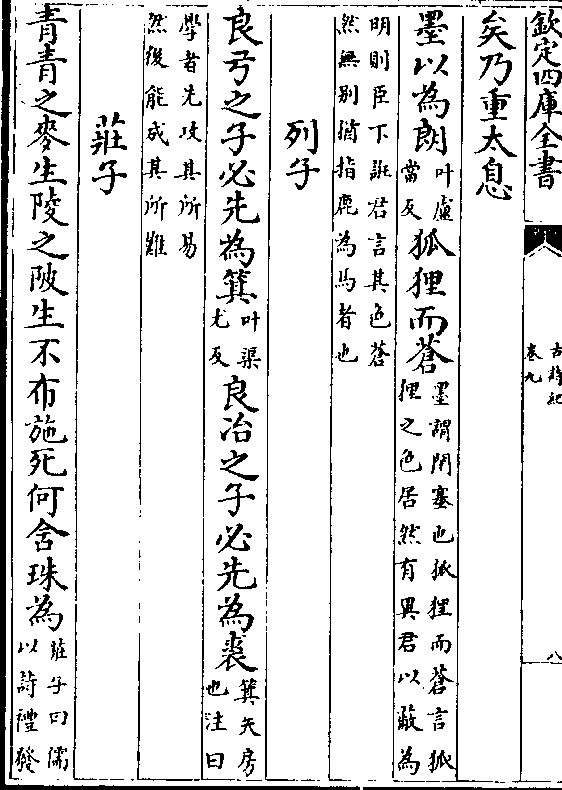 欽定四庫全書
古詩紀
卷九
八
矣乃重太息
墨以為朗叶盧當反狐狸而蒼墨謂閉塞也狐狸而蒼言狐狸之色居然有異君以蔽為
明則臣下誑君言其色蒼
然無别猶指鹿為馬者也
列子
良弓之子必先為箕叶渠尤反良冶之子必先為裘箕矢房也注曰
學者先攻其所易
然後能成其所難
莊子
青青之麥生陵之陂生不布施死何含珠為莊子曰儒以詩禮發